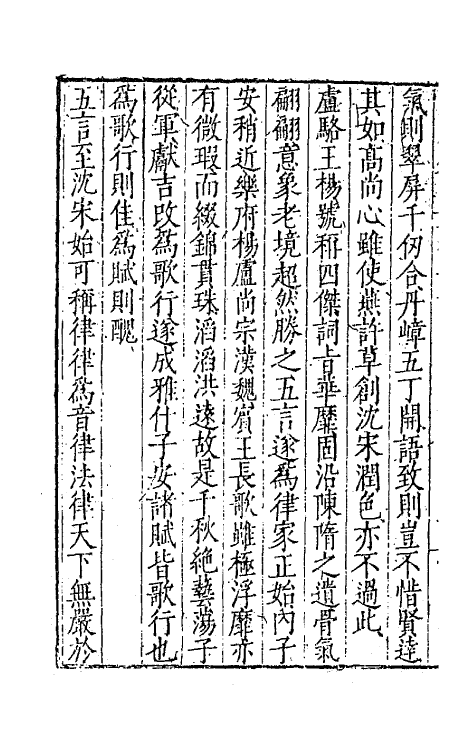 氣則翠屏千仞合丹嶂五丁開語致則豈不惜賢達
其如髙尚心雖使燕許草創沈宋潤色亦不過此
盧駱王楊號稱四傑詞旨華靡固沿陳隋之遺骨氣
翩翩意象老境超然勝之五言遂爲律家正始内子
安稍近樂府楊盧尚宗漢魏賔王長歌雖極浮靡亦
有微瑕而綴錦貫珠滔滔洪遠故是千秋絶藝蕩子
從軍獻吉攺爲歌行遂成雅什子安諸賦皆歌行也
爲歌行則佳爲賦則醜
五言至沈宋始可稱律律爲音律法律天下無嚴於